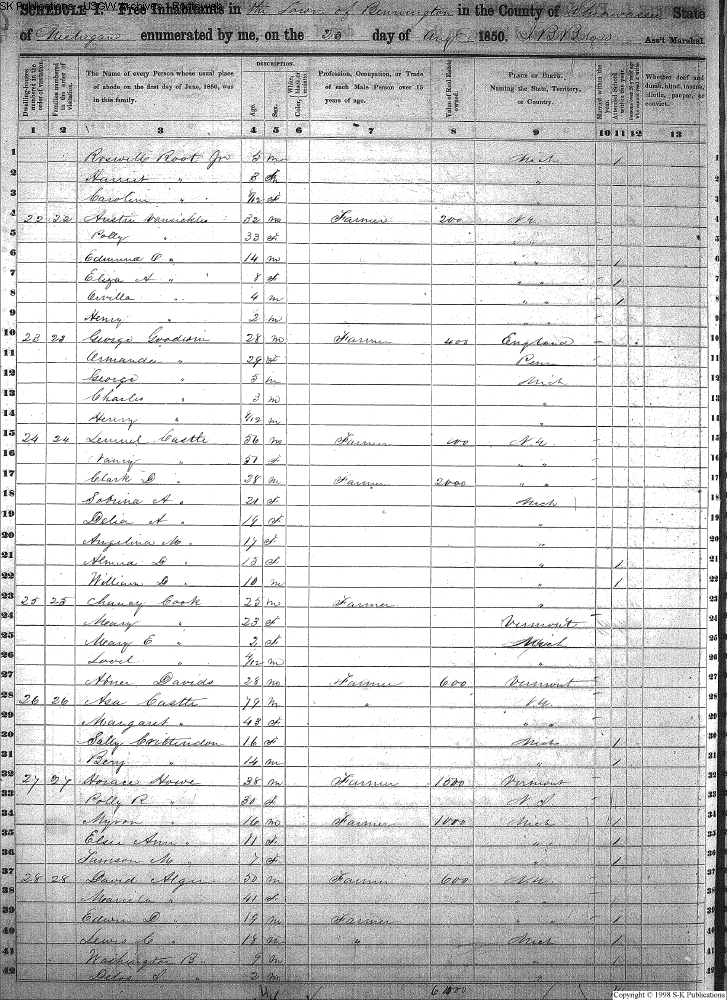 SCHEDULE I. Free Inhabitants in the Town of Bennington in the County of Shiawassee State
of Michigan enumerated by me, on the 20 day of Aug 1850. Ass't Marshal.
Dwelling-houses numbered in the order of visitation. Families numbered in the order of visitation. The Name of every Person whose usual place of abode on the first day of June, 1850, was in this family. DESCRIPTION. Age. Sex. Color Profession, Occupation, or Trade of each Male Person over 15 years of age. Value of Real Estate owned. PLACE OF BIRTH. Naming the State, Territory, or Country. Married within the year. Attended School within the year. Whether deaf and dumb, blind, insane, idiotic, pauper, or convict.
1 2 3 4 5 6 7 8 9 10 11 12 13
1 Root Jr 5 m Mich /
2 Harriet " 3 f "
3 Caroline " /12 f "
4 22 22 Vansickle 32 m Farmer 200 N.Y.
5 Polly " 33 f " "
6 Edmund P " 14 m " " /
7 Eliza A " 8 f " " /
8 Orvilla " 4 m " " /
9 Henry " 2 m " "
10 23 23 George Goodwin 28 m Farmer 400 England
11 Armanda " 29 f Penn
12 George " 5 m Mich
13 Charles " 3 m "
14 Henry " /12 m "
15 24 24 Lemuel Castle 56 m Farmer N.Y.
16 Nancy " 51 f " "
17 Clark D " 28 m Farmer 2000 " "
18 Sabrina A " 21 f Mich
19 Delia A " 19 f "
20 Angelina M. " 17 f "
21 Almira D " 13 f " /
22 William D " 10 m " /
23 25 25 Chancy Cook 25 m Farmer "
24 Mary " 23 f Vermont
25 Mary E " 2 f Mich
26 Lovel " /12 m "
27 Abner Davids 28 m Farmer 600 Vermont
28 26 26 Asa Castle 79 m " N.Y.
29 Margaret " 43 f " "
30 Sally Crittendon 16 f Mich /
31 Benj " 14 m " /
32 27 27 Horace Howe 38 m Farmer 1500 Vermont
33 Polly R " 30 f
34 Myron " 16 m Farmer 1000 Mich /
35 Elsie Ann " 11 f " /
36 M " 7 f " /
37 28 28 David Alger 50 m Farmer 600 N.Y.
38 " 41 f " "
39 Edwin D " 19 m Farmer " " /
40 Lewis C " 18 m " Mich /
41 Washington B. " 9 m " /
42 Delos " 2 m "
Copyright © 1998 S-K Publications